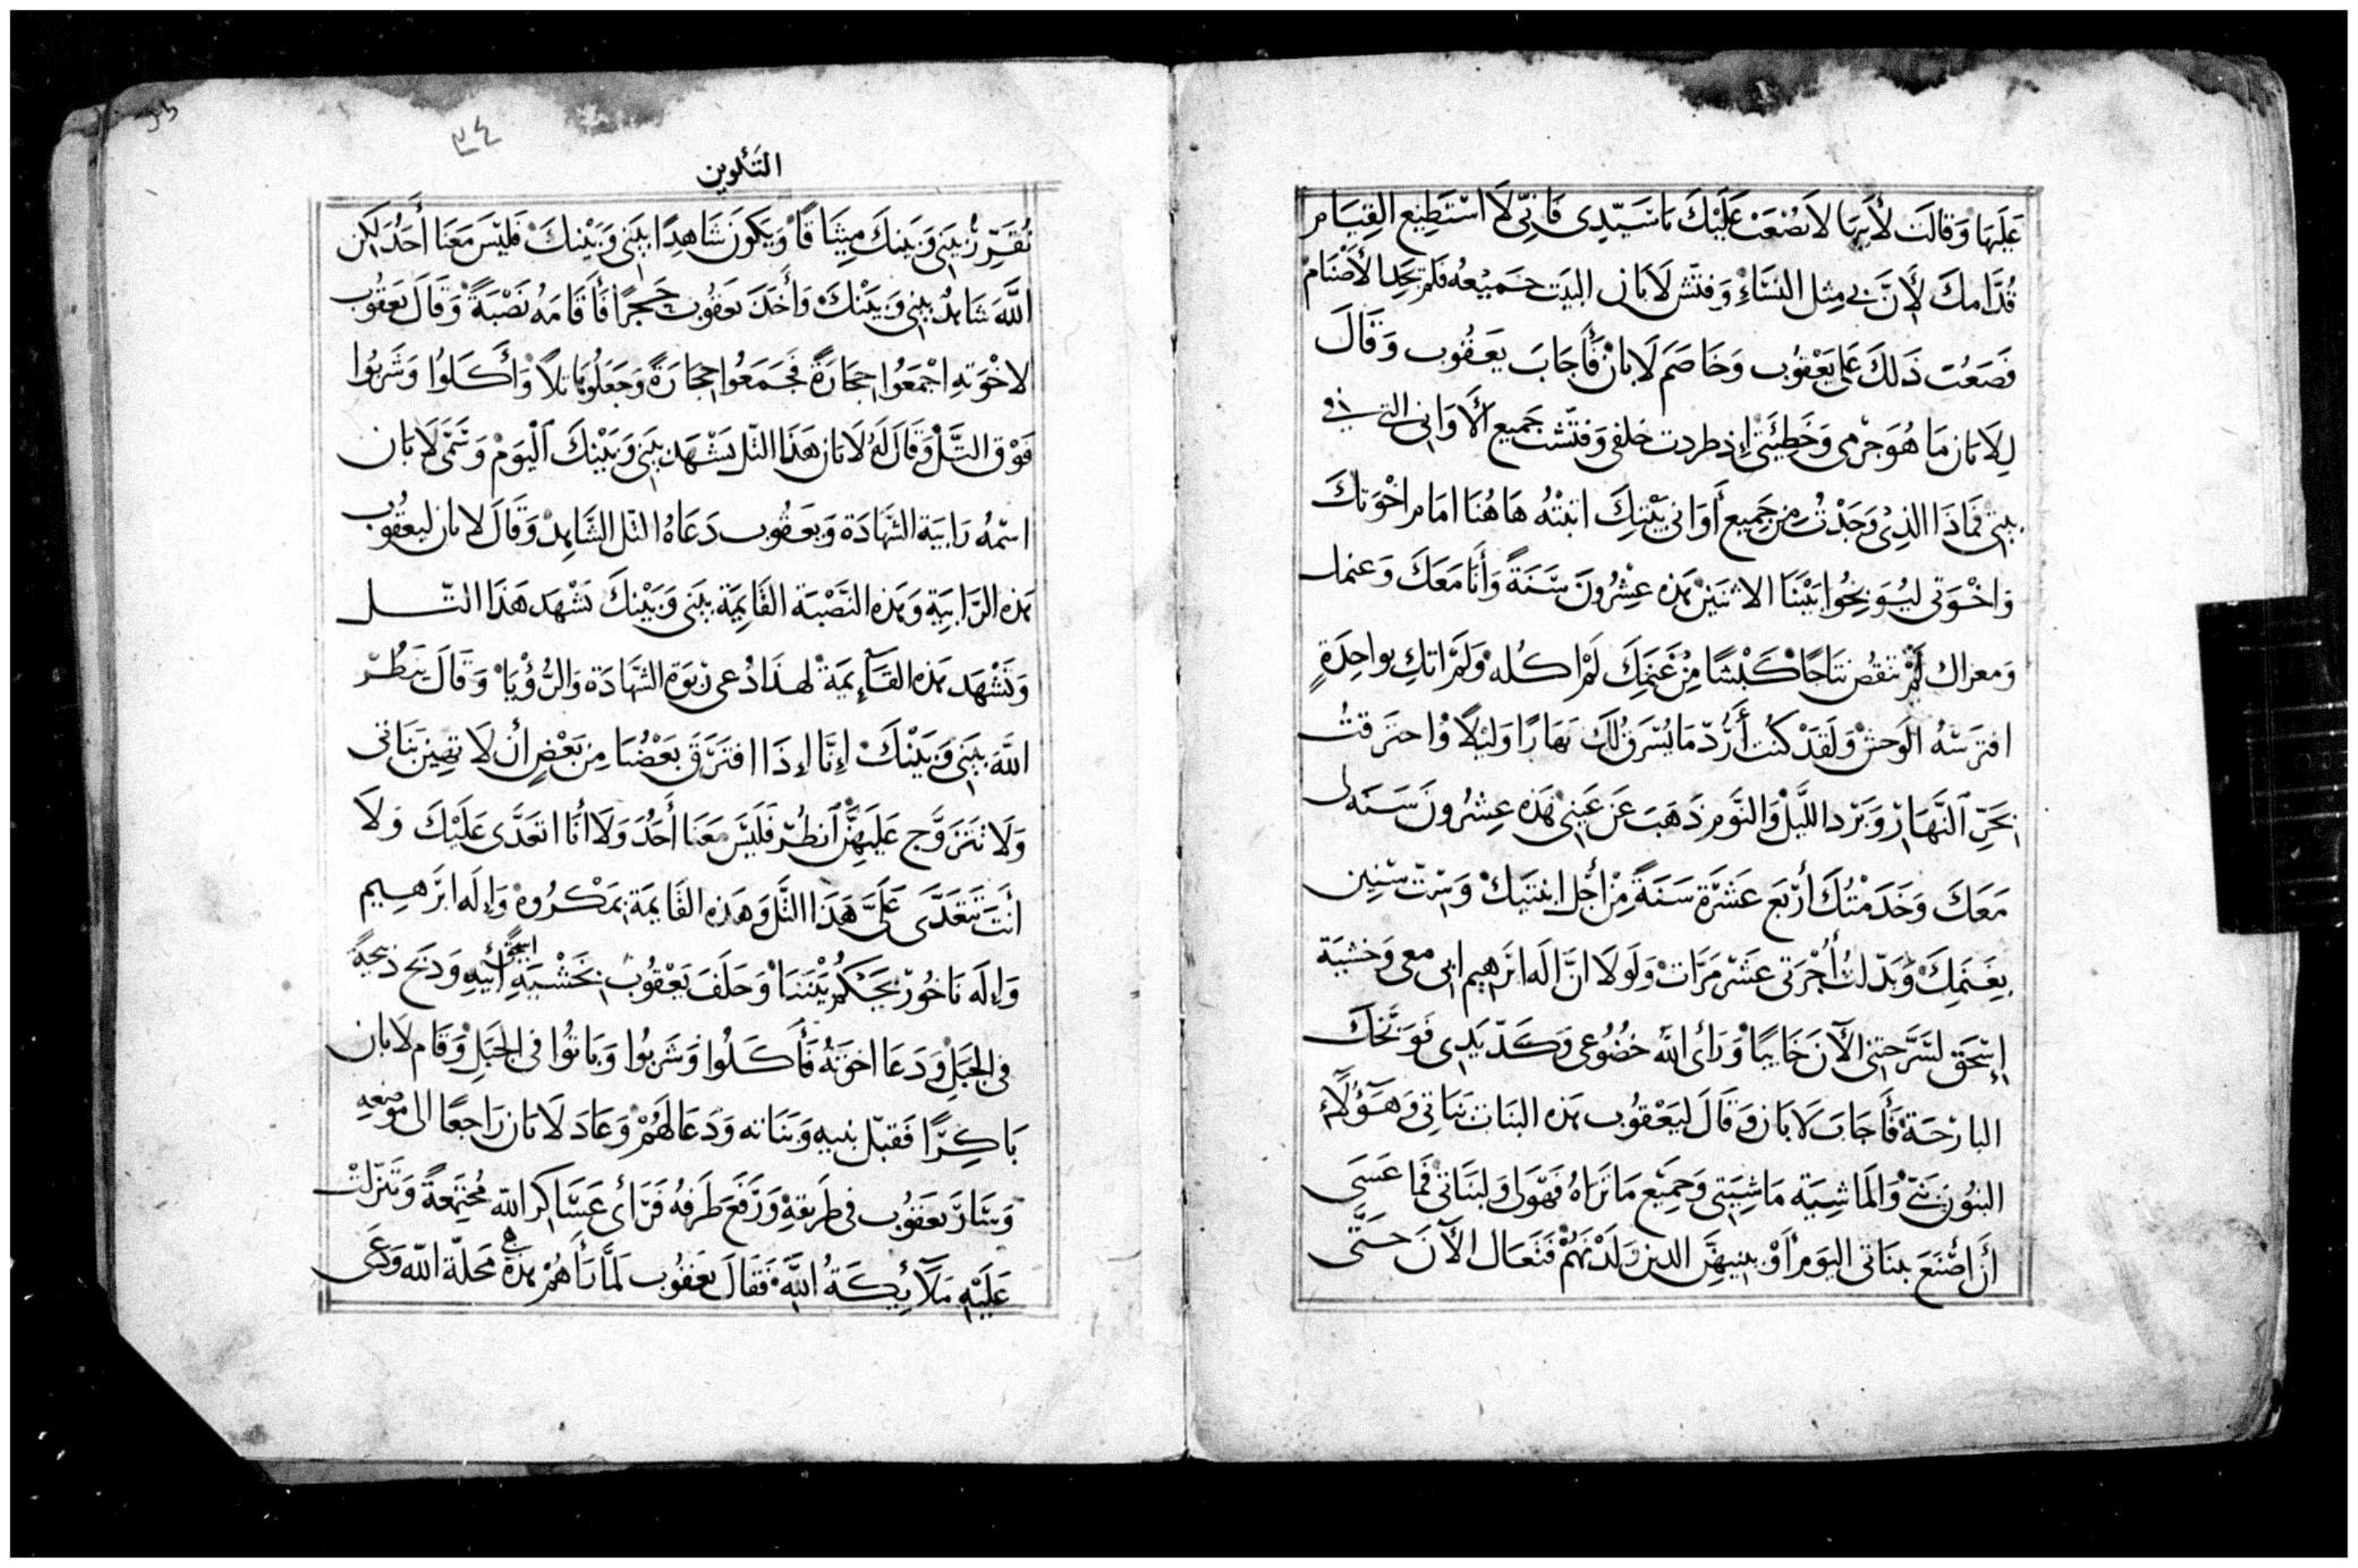 عَلَيهَا وَقَالَت لأَبِيهَا لَا يَصْعَبْ عَلَيْكَ يَا سَيّدِى فَإِنِّى لَا اسْتَطِيع القِيَام
قُدَّامكَ لأَنَّ بى مِثل النسَاءِ وَفتّش لَابَان البيَت جَميْعهُ فَلَم يَجِد الأَصْنَام
فَصَعُبَ ذَلكَ عَلَى يَعْقوُب وَخَاصَمَ لَابَانْ فَأَجَابَ يَعقُوب وَقَالَ
لِلَابَان مَا هُوَ جرْمى وَخَطِيَتى إِذ طردت خلفى وَفتّشت جَميع الأَوَانى التى فى
بيتى فَمَاذَا الذِى وَجَدْتُ مِن جَمِيع أَوَانى بَيْتِكَ اثبتْهُ هَا هُنَا امَام اخْوَتكَ
وَاخْوَتى ليُوَبخُوا بَيْنَنَا الاثنَين هَذه عِشْرُونَ سَنَةً وَأَنَا مَعَكَ وَغنمك
وَمعزاك لَمْ تنقُص نتاجًا كَبْشًا مِنْ غَنَمِكَ لَمْ اكُله وَلَمْ اتكِ بواحِدَةٍ
افترسَهُ الَوحش وَلَقَدْ كُنت أَرُدّ مَا يُسْرَقُ لَكَ نَهَارًا وَليْلًا وَاحتَرقتُ
بحَرّ النَّهَارْ وَبَرْد اللّيَلْ وَالنَّوم ذَهَبَ عَن عَينى هَذه عِشْرُونَ سَنَه لى
مَعَكَ وَخَدَمْتُكَ أَرْبَع عَشْرَة سَنَةً مِنْ أَجْل ابنتيَكْ وَسِتّ سْنِين
بغَنَمِكَ وَبَدّلتَ أُجْرَتى عَشْر مَرَّات وَلَولَا انَّ الَه ابْرَهِيم ابى معى وَخشيَة
إِسْحَق لسَرَّحتنى الآنَ خَايبًا وَرَأى اللّه خضُوعى وَكَدّ يَدِى فَوَبَّخكَ
البارحَة فَأَجَابَ لَابَان وَقَالَ ليَعْقُوب هَذه البنَات بَنَاتى وَهَؤُلَاءِ
البنُون بَنىَّ وَالمَاشِيَة مَاشِيَتى وَجَمِيْع مَا تَرَاهُ فَهوَلى وَلبنَاتى فَمَا عَسَى
أَنْ أَصْنَعَ ببنَاتى اليَوم أَوْ ببنيهِنَّ الذين وَلَدْنَهُمْ فَتعَال الآنَ حَتَّى
٣٤
التَكْوين
نُقَرِّرُ بَيْنِى وَبَينكَ مِيثَاقًا وَيَكُونَ شَاهِدًا بيَنِى وَبَيْنكَ فَليْسَ مَعَنَا أَحَدٌ لَكِن
اللَّهَ شَاهدٌ بَينِى وَبَيْنكَ وَأَخَذَ يَعقُوب حَجرًا فَأَقَامَهُ نَصْبَةً وَقَالَ يَعقُوب
لاخْوَتهِ اجْمَعُوا حجَارَةً فَجَمَعُوا حجَارَةً وَجَعَلُوهَا تلًا وَأَكَلُوا وَشَربُوا
فَوْق التَّلْ وَقَالَ لَهُ لَابَان هَذَا التّل يَشْهَد بيَنِى وَبَيْنكَ الْيَوْمْ وَسَمَّى لَابَان
اسْمهُ رَابيَة الشّهَادَة وَيَعقُوب دَعَاهُ التّل الشَّاهِدْ وَقَالَ لابان ليعقُوب
هَذه الرَّابيَةِ وَهَذه النَّصْبَة القَايمَة بيَنى وَبَيْنكَ يشْهَد هَذَا التّل
وَتَشْهَد هَذه القَآيمَةْ لهذَا دُعى رَبْوَة الشّهَادَة وَالرُّؤْيَا وَقَالَ ينظُر
اللَّهَ بَيَنى وَبَيْنكَ إِنَّا إِذَا افتَرَقَ بَعْضُنَا مِن بَعْضٍ أَنْ لَا تهِين بَنَاتى
وَلَا تتَزَوَّج عَلَيهِنَّ انظُر فَلَيسَ مَعَنَا أَحَدٌ وَلَا أَنَا اتعَدَّى عَلَيْكَ وَلَا
أَنتَ تَتَعَدَّى عَلَىَّ هَذَا التَّل وَهَذه القَايمَة بمَكْرُوهْ وَإِلَه ابْرَهِيم
وَإِلَه نَاخُورْ يَحكُم بيْننَا وَحَلَفَ يَعْقُوب بخَشْيَةِ اسحق أَبيهِ وَذبَح ذبيحَةً
فى الجَبَلِ وَدَعَا اخوَتهُ فَأَكَلُوا وَشَربُوا وَبَاتُوا فى الجَبَلِ وَقَام لَابَان
بَاكِرًا فَقبّل بنيه وَبَنَاته وَدَعَا لَهُمْ وَعَادَ لَابَان رَاجعًا الى مَوضعهِ
وَسَارَ يَعقُوب فى طَريقهِ وَرَفَعَ طَرفهُ فَرَأى عَسَاكر اللّه مُجتَمعةً وَتنزلتْ
عَلَيْه مَلَآئِكَةُ اللَّه فَقَالَ يَعقُوب لَمَّا رَأَهُمْ هَذه هى مَحَلّة اللّه وَدَعَى